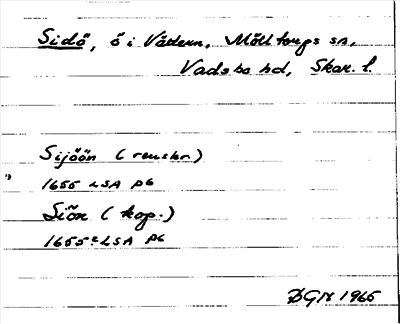 Sidö, ö i Vättern, Mölltorps sn,
Vadsbo hd, Skar. l.
Sijöön (renskr.)
1655 LSA p6
Siön (kop.)
1655 LSA p6
1965